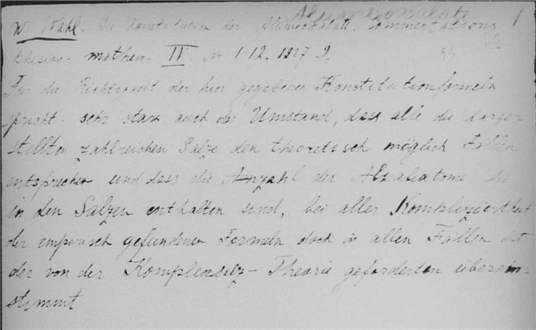 Alumooxalate
W. Wahl. Die Konstitution der Alumooxalate. Commentationes
Physico-mathem. IV Nr. 1-12. 1927 9.
Für die Richtigkeit der hier gegebenen Konstitutionsformeln
spricht sehr stark auch der Umstand, dass alle die darge-
stellten zahlreichen Salze den theoretisch möglich Fällen
entsprechen und dass die Anzahl der Alkaliatome, die
in den Salzen enthalten sind, bei aller Kompliziertheit
der empirisch gefundenen Formeln doch in allen Fällen mit
der von der Komplexsalz-Theorie geforderten überein-
stimmt